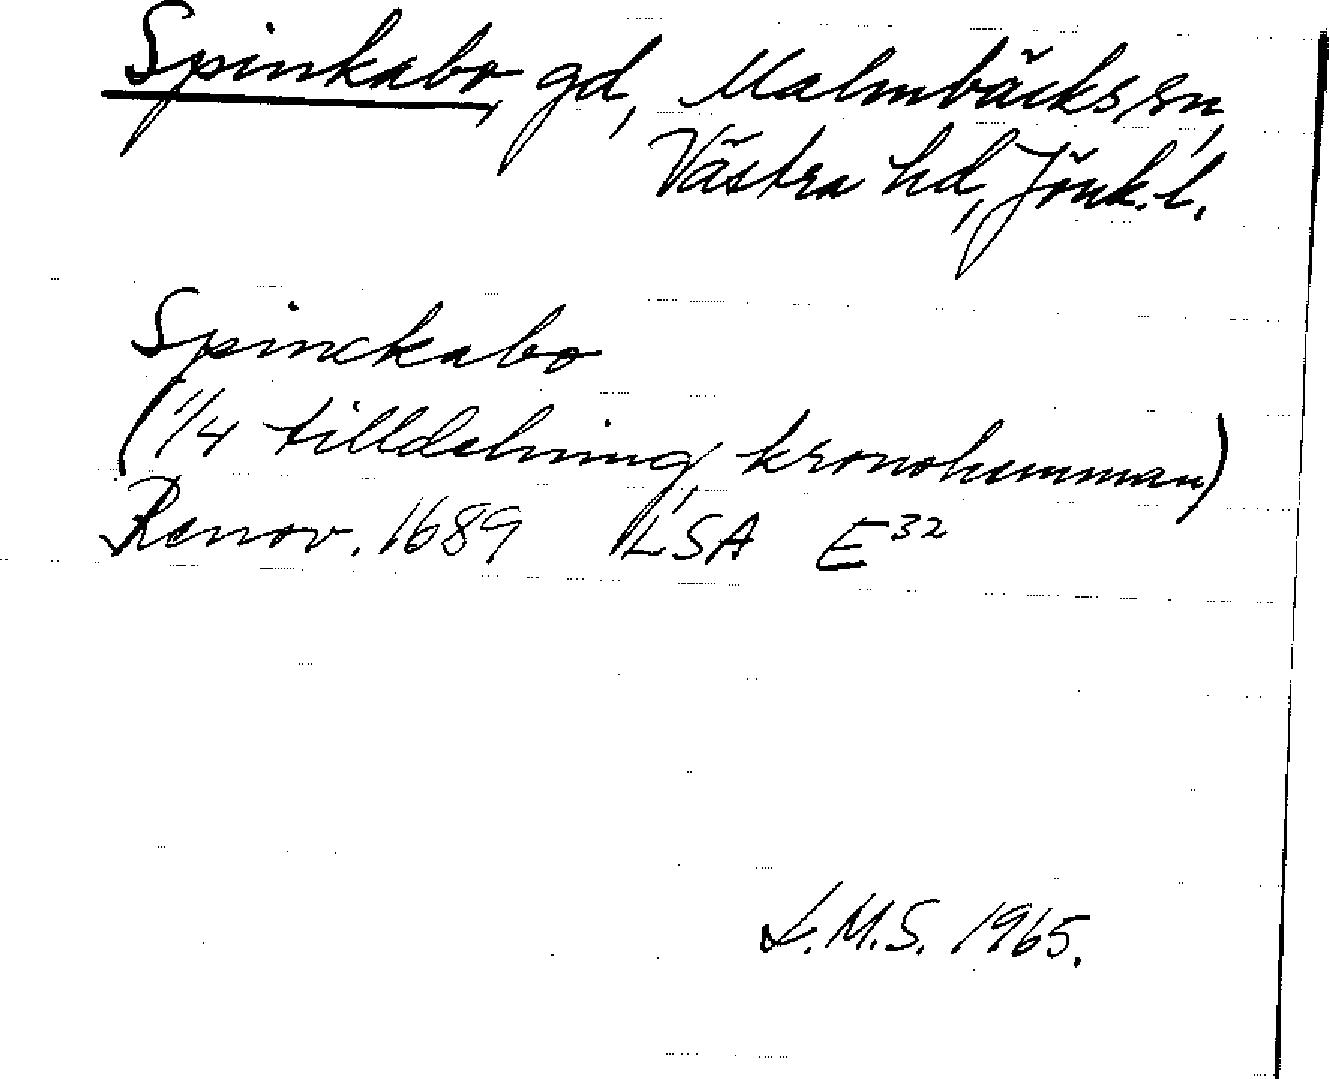 Spinkabo, gd, Malmbäcks sn,
Västra hd, Jönk. l.
Spinckabo
(1/4 tilldelning, kronohemman)
Renov. 1689 LSA E³²
L.M.S. 1965.